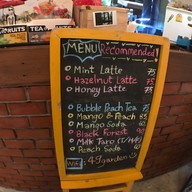 FRUITS TEA
MENU Recommended!
Mint Latte 75
Hazelnut Latte 75
Honey Latte 75
Bubble Peach Tea 75
Mango & Peach 85
Mango Soda
Black Forest
Milk Taro
Peach Soda
Wifi : 49garden